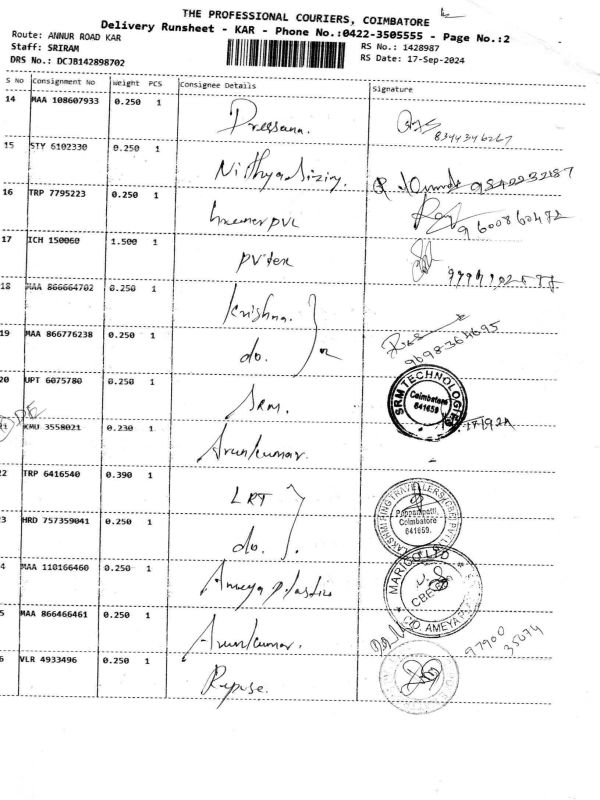 THE PROFESSIONAL COURIERS, COIMBATORE
Delivery Runsheet - KAR - Phone No.:0422-3505555 - Page No.:2
Route: ANNUR ROAD KAR
Staff: SRIRAM
DRS No.: DCJB142898702
RS No.: 1428987
RS Date: 17-Sep-2024
S No Consignment No Weight PCS Consignee Details Signature
14 MAA 108607933 0.250 1 Pressana.
8344346267
15 STY 6102330 0.250 1
16 TRP 7795223 0.250 1
9600860472
17 ICH 150060 1.500 1 pvtex
18 MAA 866664702 0.250 1 krishna.
19 MAA 866776238 0.250 1 do.
20 UPT 6075780 0.250 1 SRM.
SRM TECHNOLOGIES
Coimbatore
641659
21 KMU 3558021 0.230 1 Arunkumar.
22 TRP 6416540 0.390 1 LRT
Coimbatore
641659.
23 HRD 757359041 0.250 1 do.
4 MAA 110166460 0.250 1 Ameya plastic
MARICO LTD
C/O. AMEYA
5 MAA 866466461 0.250 1 Arunkumar.
97900
35074
6 VLR 4933496 0.250 1 Repose.